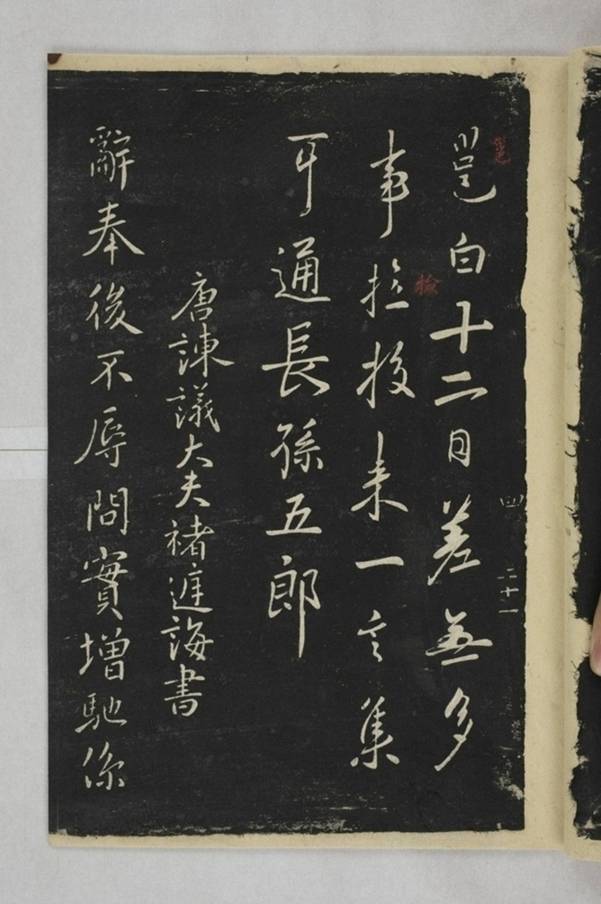 邕白十二日差無多
事拉投来一言集
耳通長孫五郎
唐諫議大夫褚庭誨書
辭奉後不辱問實增馳係
四
二十一
邕